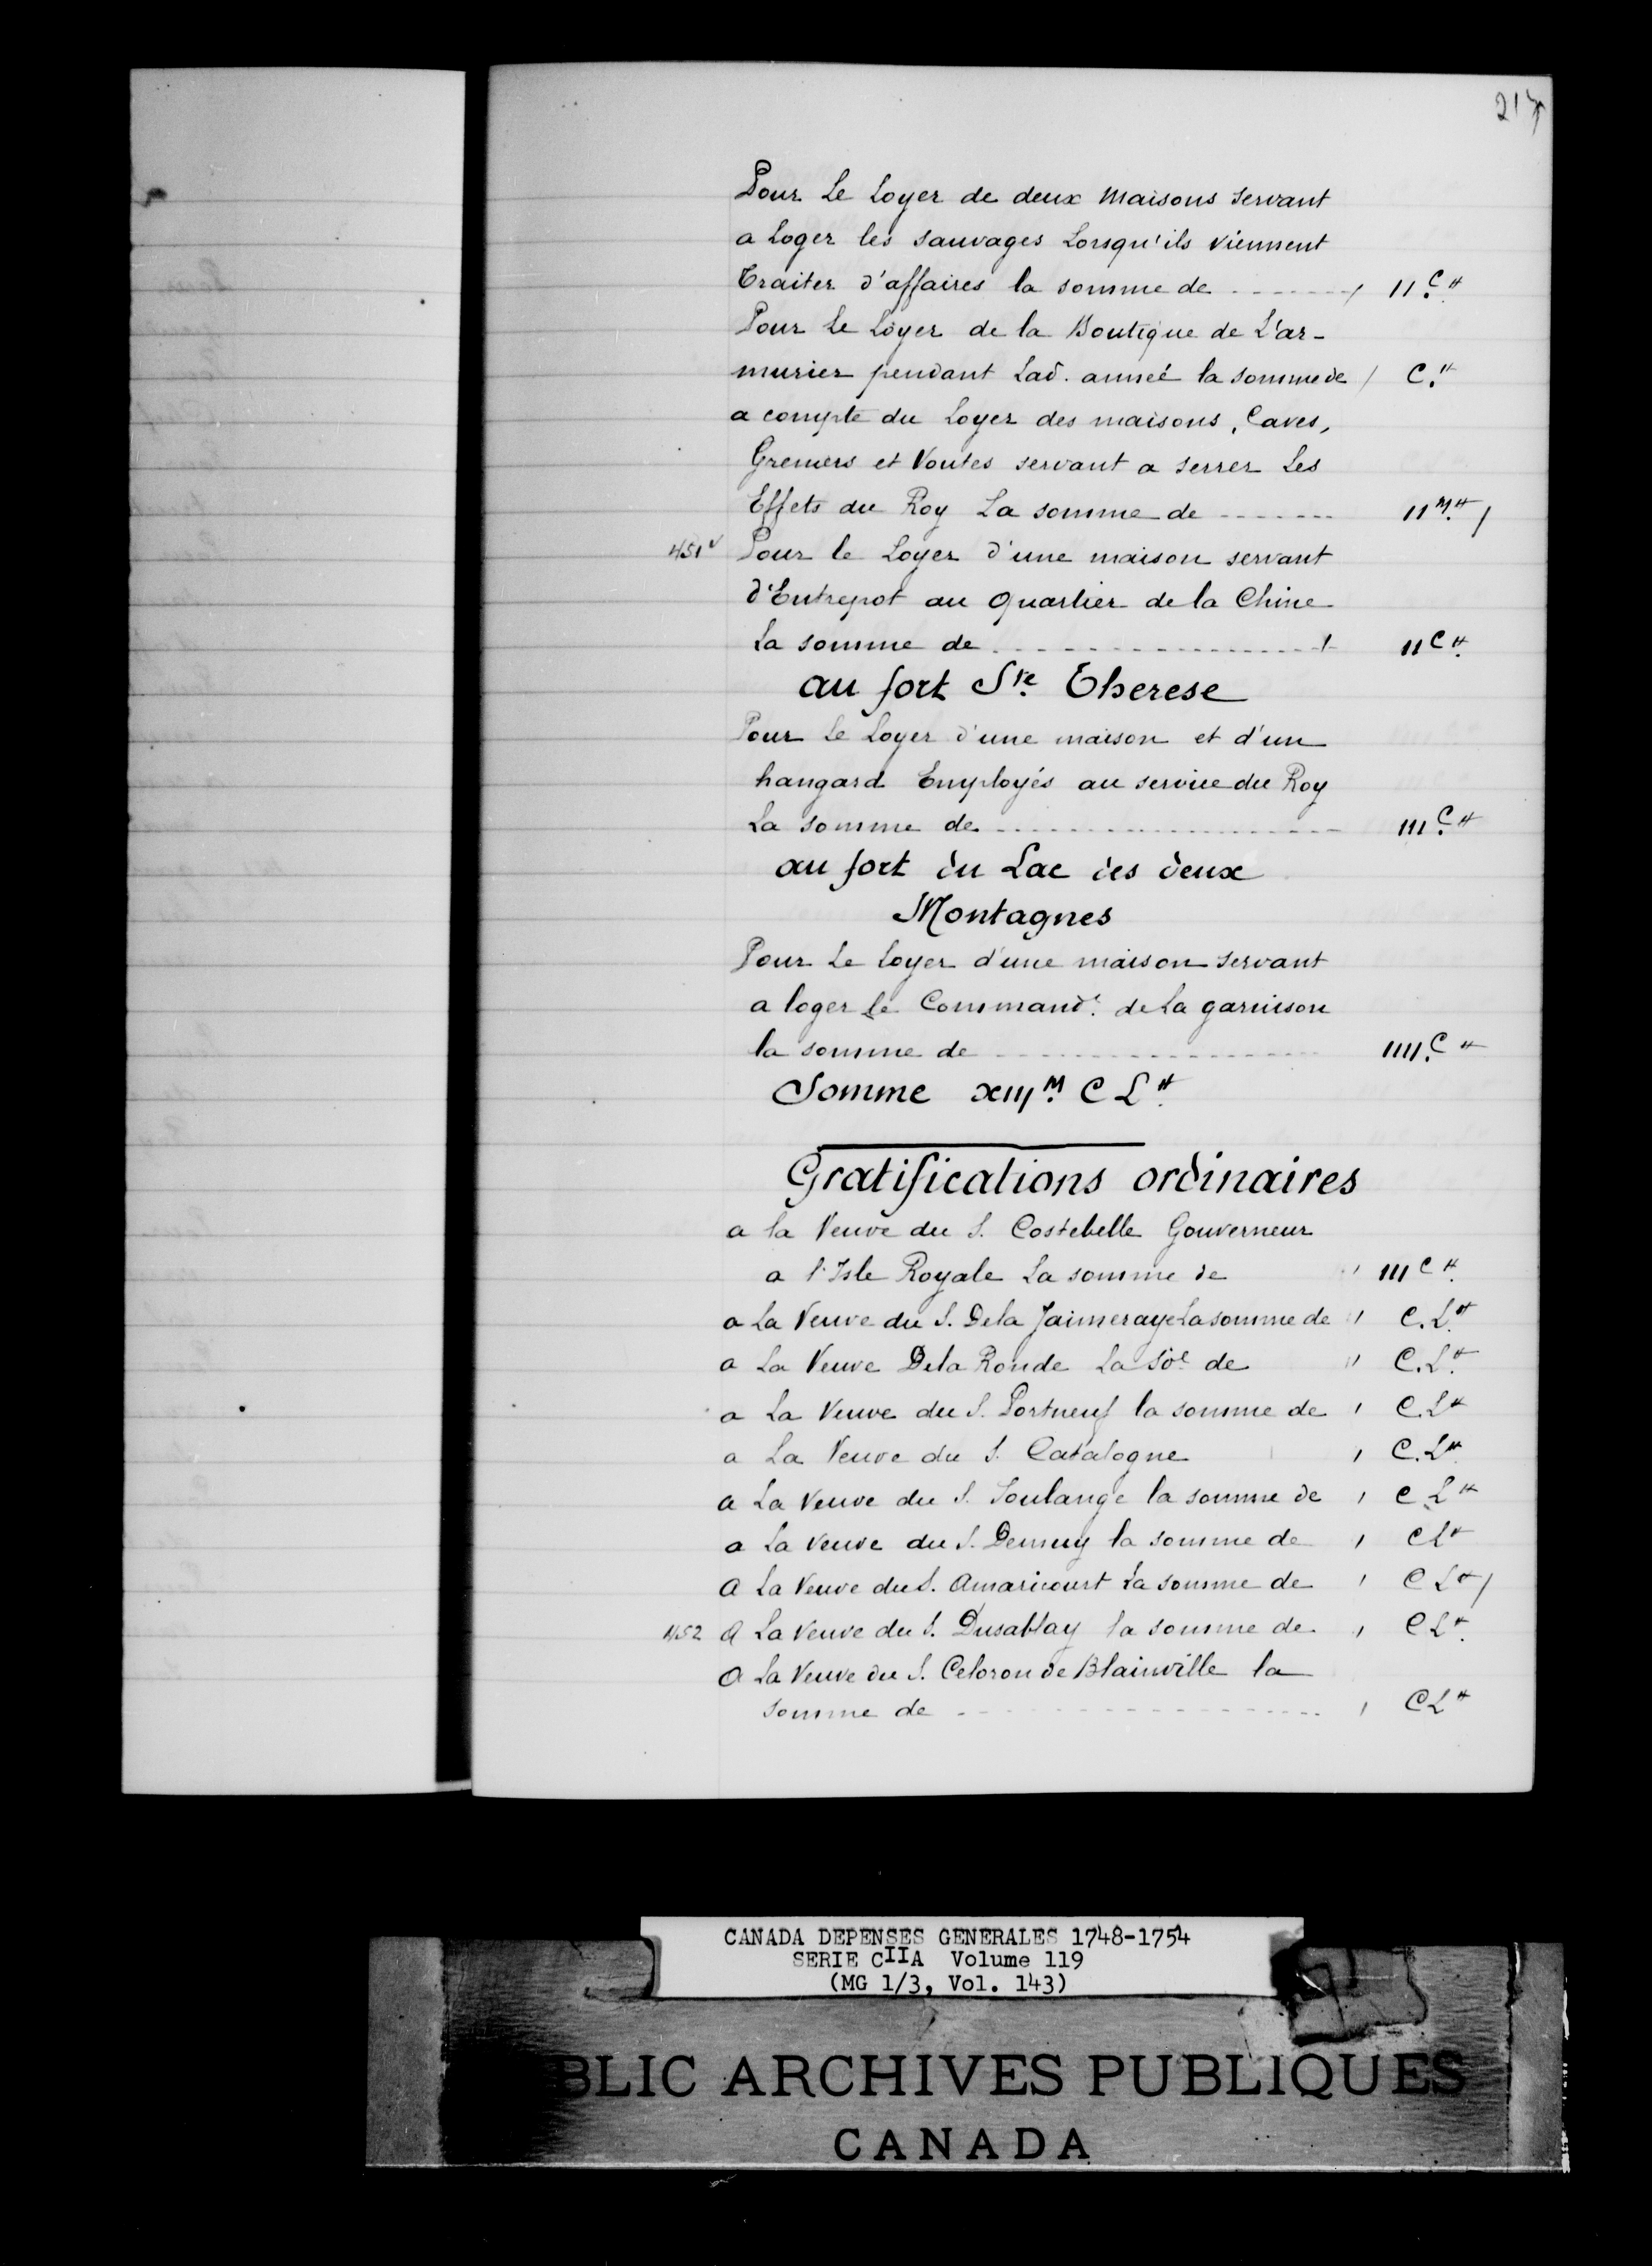 217
Pour Le Loyer de deux Maisons servant
a Loger les sauvages Lorsqu'ils viennent
Traiter d'affaires la somme de ------- / 11.C ₶
Pour Le Loyer de la Boutique de L'ar-
murier pendant Lad. anneé la somme de / C.₶
a compte du Loyer des maisons, Caves,
Greniers et Voutes servant a serrer Les
Effets du Roy La somme de ------- 11 M.₶ /
451v Pour le Loyer d'une maison servant
d'Entrepot au Quartier de la Chine
La somme de ------- / 11 C ₶.
au fort Ste. Therese
Pour Le Loyer d'une maison et d'un
hangard Employés au service du Roy
La somme de ------- 111.C ₶
au fort du Lac des deux
Montagnes
Pour Le loyer d'une maison servant
a loger le Command.t de La garnison
la somme de ------- 1111.C ₶
Somme xiij M. C L ₶.
Gratifications ordinaires
a la Veuve du S. Costebelle Gouverneur
a l'Isle Royale La somme de ' 111 C ₶.
a La Veuve du S. Dela Jaimeraye La somme de " C. L.₶
a La Veuve Dela Ronde La soe de " C. L.₶
a La Veuve du S. Portneuf la somme de ' C. L ₶
a La Veuve du S. Catalogne ' C. L ₶
a La Veuve du S. Soulange la somme de ' C L ₶
a La Veuve du S. Demuy la somme de ' C L ₶
A La Veuve du S. Amaricourt La somme de ' C L ₶ /
452 A La Veuve du S. Dusablay la somme de ' C L ₶.
A La Veuve du S. Celoron de Blainville la
somme de ------- ' C L ₶
CANADA DEPENSES GENERALES 1748-1754
SERIE CIIA Volume 119
(MG 1/3, Vol. 143)
BLIC ARCHIVES PUBLIQUES
CANADA